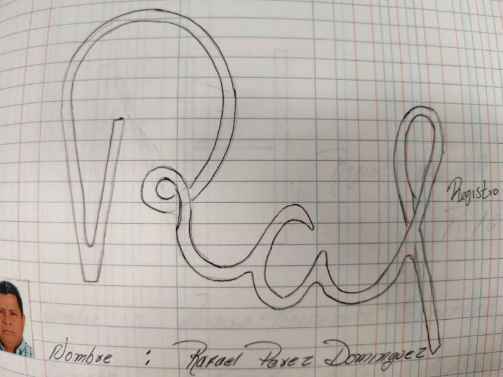 Raf
Registro
Nombre : Rafael Parez Dominguez